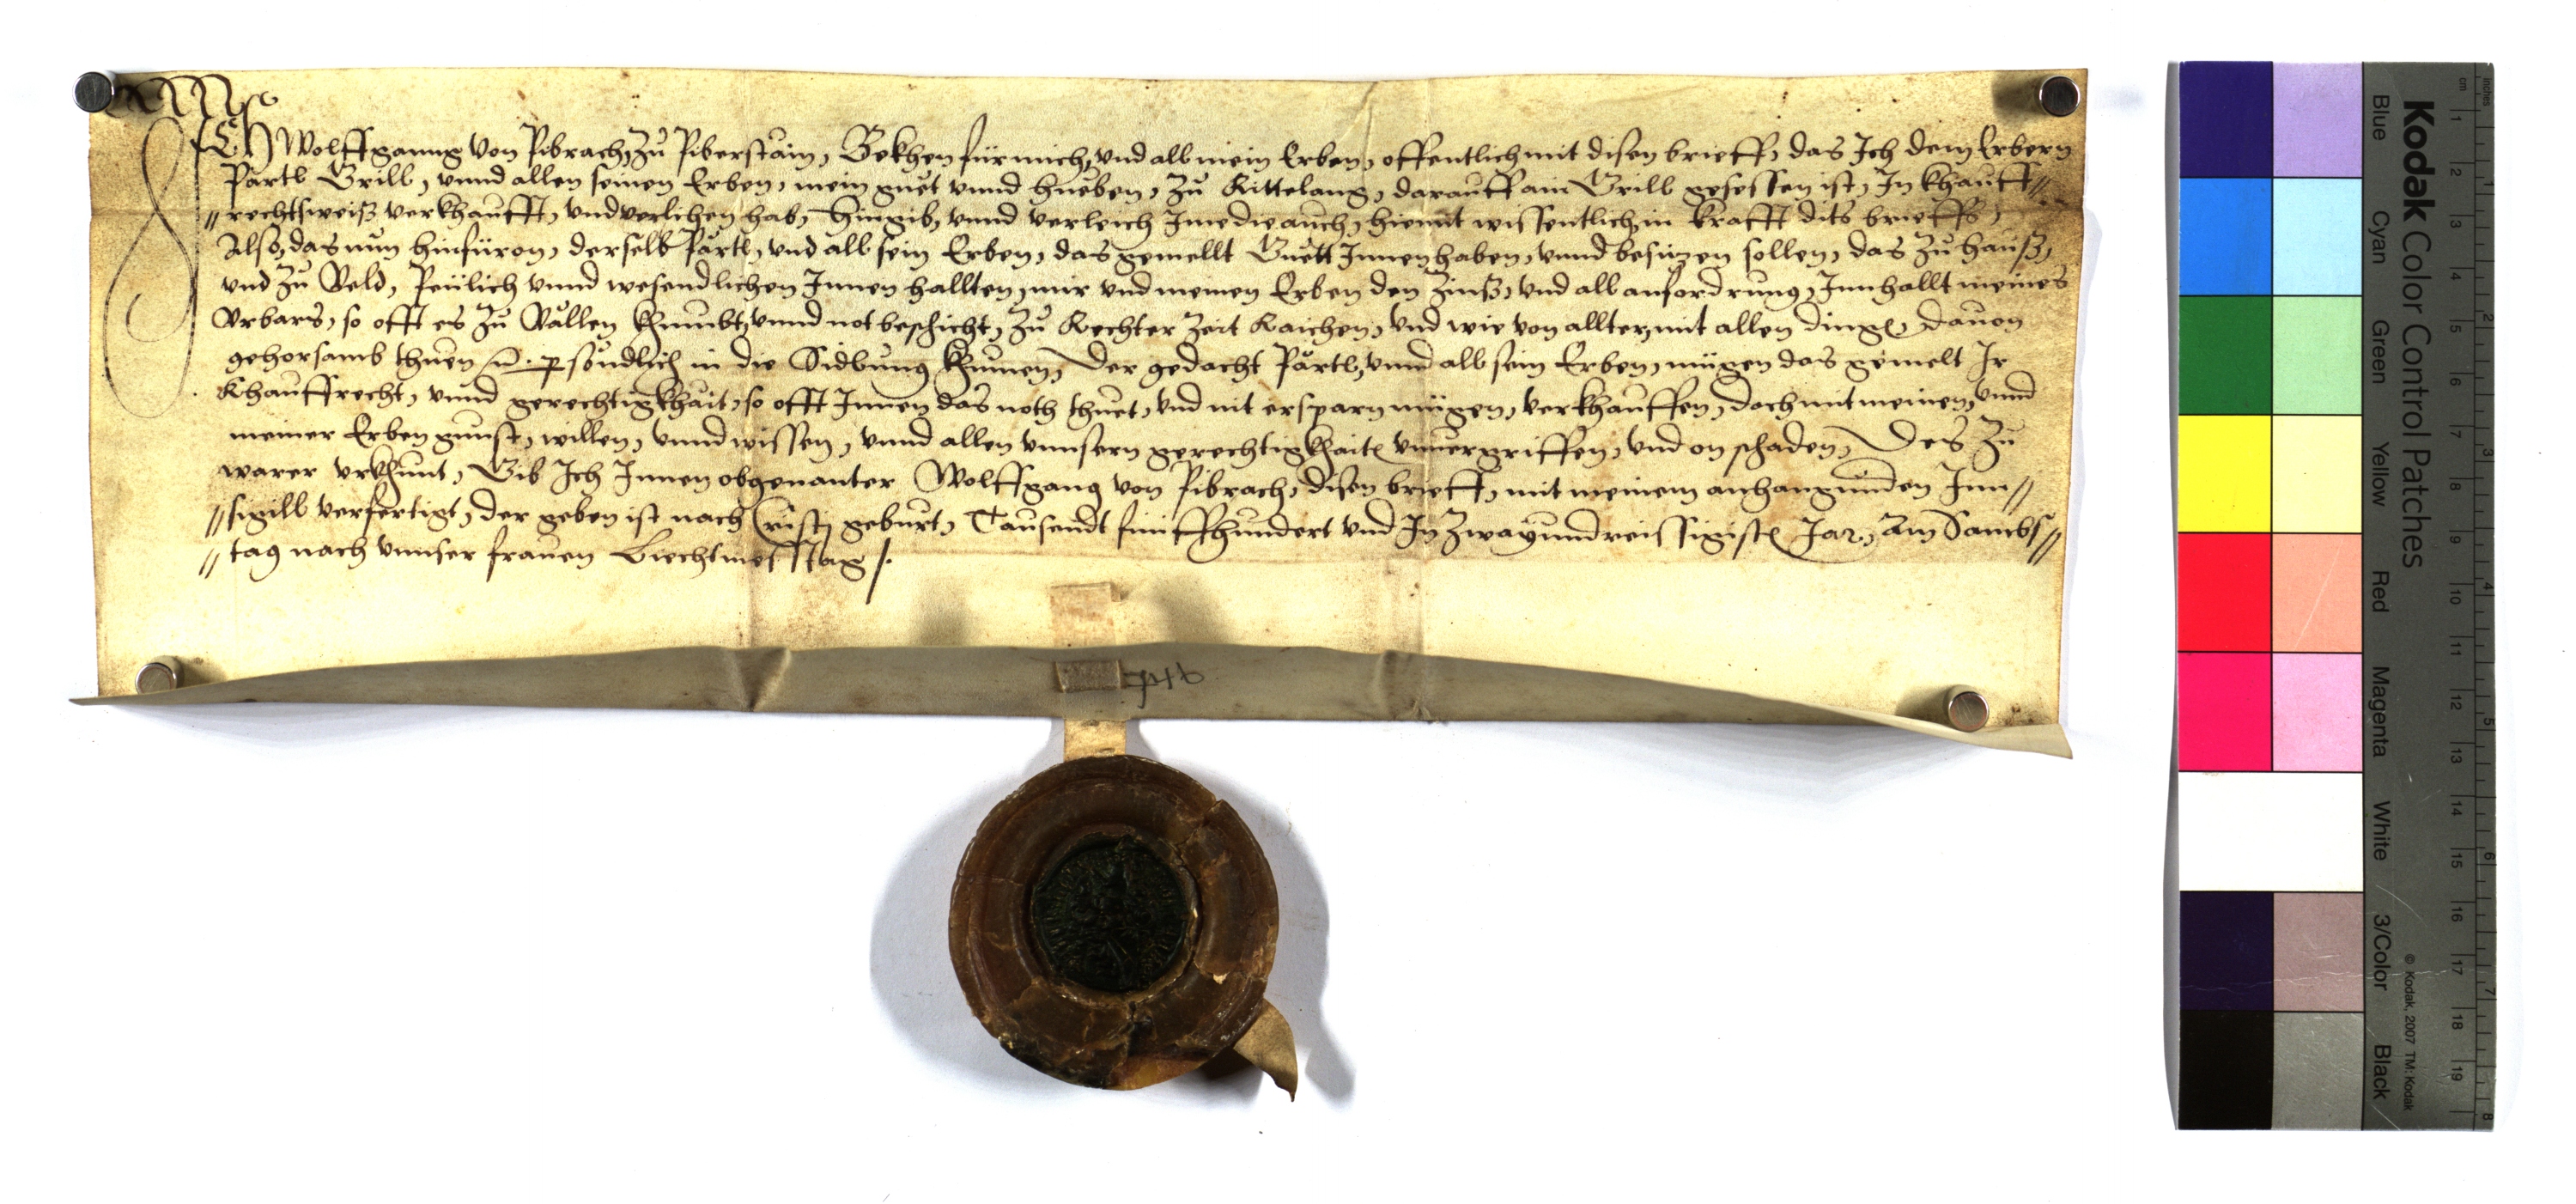 ICH Wolffganng von Pibrach, zu Piberstain, Bekhen für mich, und all mein Erben, offentlich mit disen brieff, das Ich dem Erbern
Pärtl Grill, unnd allen seinen Erben, mein guet unnd hueben, zu Rittelang, darauff ain Grill gesessen ist, In khauff//
//rechtsweiß verkhaufft, und verlichen hab, Hingib, unnd verleich Ime die auch, hiemit wissentlich, in krafft dits brieffs,
Also, das nun hinfüron, derselb Pärtl, und all sein Erben, das gemellt Guett Innen haben, unnd besizen sollen, das zu hauß,
und zu Veld, Peülich unnd wesendlichen Innen hallten, mir und meinen Erben den Zinß, und all anfordrung, Innhallt meines
Urbars, so offt es zu Vällen khumbt, unnd not beschicht, zu Rechter Zeit Raichen, und wie von allter, mit allen dingen, dauon
gehorsamb thuen persöndlich in die Sidlung khumen, Der gedacht Pärtl, unnd all sein Erben, mügen das gemelt Ir
Khauffrecht, unnd gerechtigkhait, so offt Innen das noth thuet, und nit ersparn mügen, verkhauffen, doch mit meinen, unnd
meiner Erben gunst, willen, unnd wissen, unnd allen unnsern gerechtigkhaiten unuergriffen, und on schaden, Des zu
warer urkhunt, Gib Ich Innen obgenanter Wolffgang von Pibrach, disen brieff, mit meinem anhangunden Inn//
//sigill verfertigt, der geben ist nach Cristj geburt, Tausendt fünffhundert und In zwayundreissigisten Jar, Am Sambs//
//tag nach unnser frauen Liechtmesstag /.
Kodak Color Control Patches
Blue Cyan Green Yellow Red Magenta White 3/Color Black
© Kodak, 2007 TM: Kodak
inches 1 2 3 4 5 6 7 8
cm 1 2 3 4 5 6 7 8 9 10 11 12 13 14 15 16 17 18 19